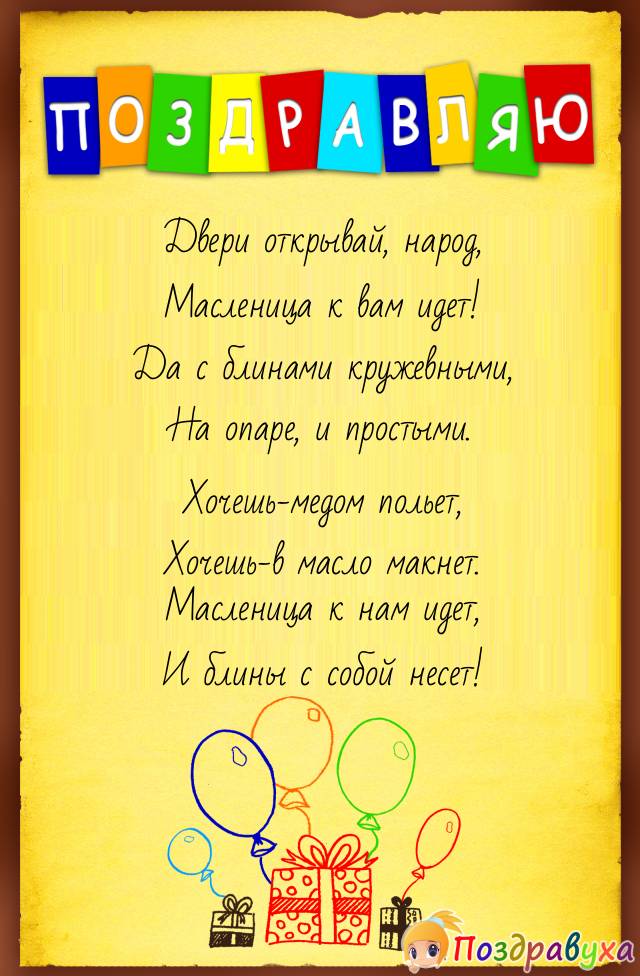 ПОЗДРАВЛЯЮ
Двери открывай, народ,
Масленица к вам идет!
Да с блинами кружевными,
На опаре, и простыми.
Хочешь-медом польет,
Хочешь-в масло макнет.
Масленица к нам идет,
И блины с собой несет!
Поздравуха